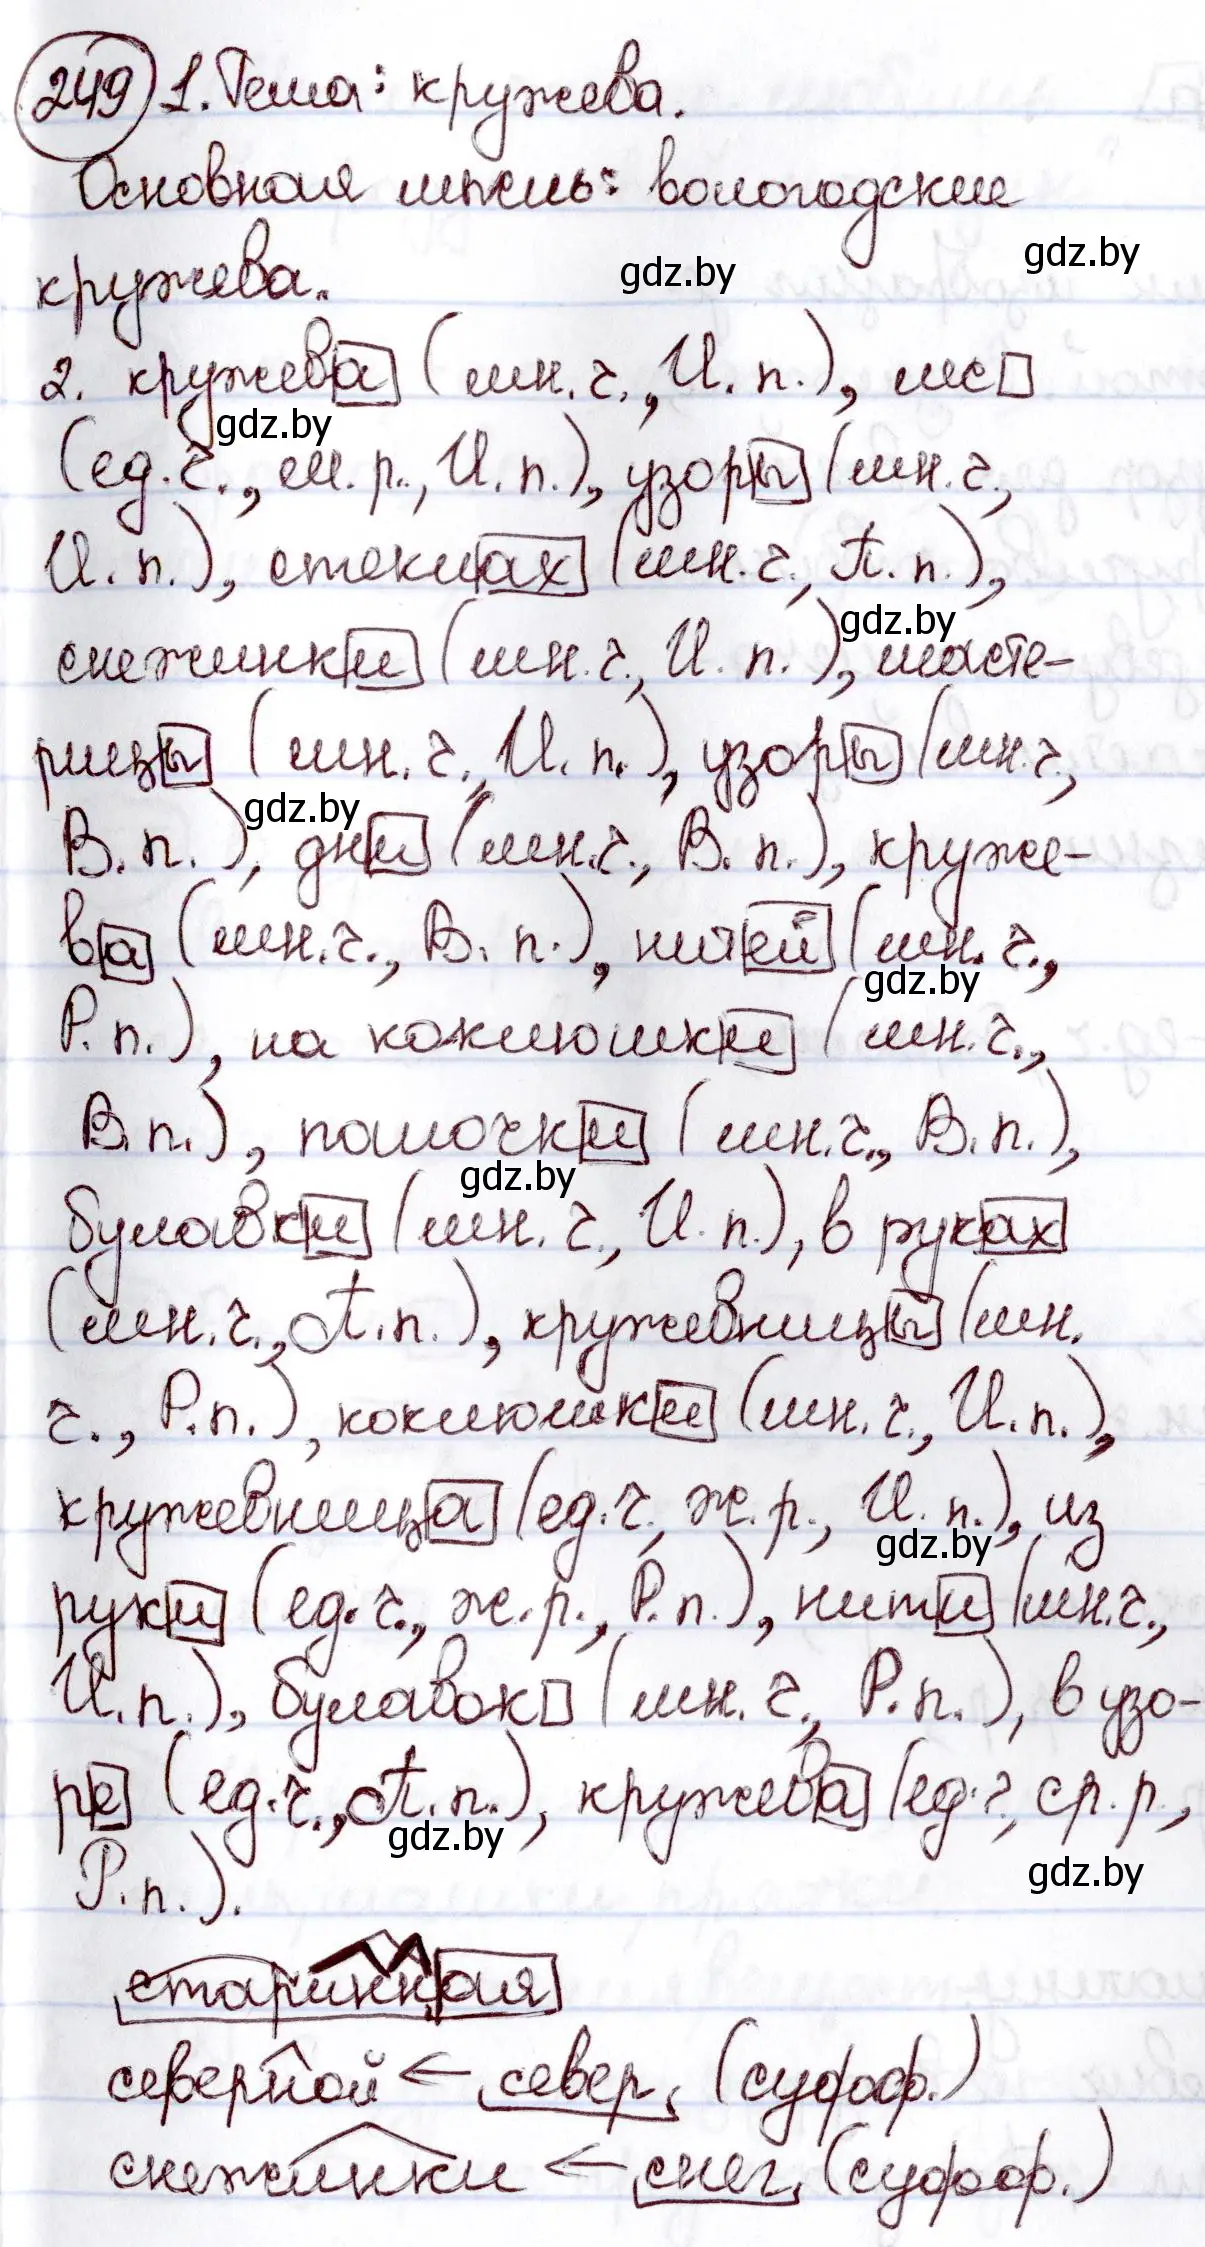 249 1. Тема: кружева.
Основная мысль: вологодские
gdz.by
gdz.by
кружева.
2. кружева (мн. ч., И. п.), лес
gdz.by
(ед. ч., м. р., И. п.), узоры (мн. ч.,
И. п.), стеклах (мн. ч., П. п.),
gdz.by
снежинки (мн. ч., И. п.), масте-
рицы (мн. ч., И. п.), узоры (мн. ч.,
gdz.by
В. п.), дни (мн. ч., В. п.), круже-
ва (мн. ч., В. п.), нитей (мн. ч.,
gdz.by
Р. п.), на коклюшки (мн. ч.,
В. п.), палочки (мн. ч., В. п.),
gdz.by
булавки (мн. ч., И. п.), в руках
(мн. ч., П. п.), кружевницы (мн.
ч., Р. п.), коклюшки (мн. ч., И. п.),
кружевница (ед. ч., ж. р., И. п.), из
gdz.by
руки (ед. ч., ж. р., Р. п.), нити (мн. ч.,
И. п.), булавок (мн. ч., Р. п.), в узо-
ре (ед. ч., П. п.), кружева (ед. ч., ср. р.,
gdz.by
gdz.by
Р. п.).
старинная
северной ← север (суфф.)
снежинки ← снег (суфф.)